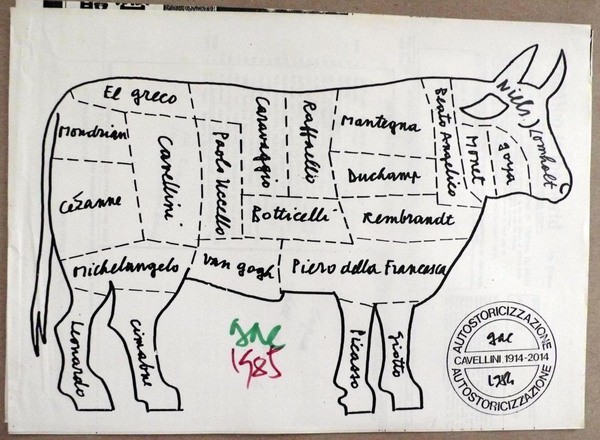 El greco
Niels, Lomholt
Caravaggio
Raffaello
Mantegna
Beato Angelico
Monet
goya
Mondrian
Cavellini
Paolo Uccello
Duchamp
Cézanne
Botticelli
Rembrandt
Michelangelo
Van gogh
Piero della Francesca
Leonardo
Cimabue
gac
1985
Picasso
Giotto
AUTOSTORICIZZAZIONE
gac
CAVELLINI 1914-2014
AUTOSTORICIZZAZIONE